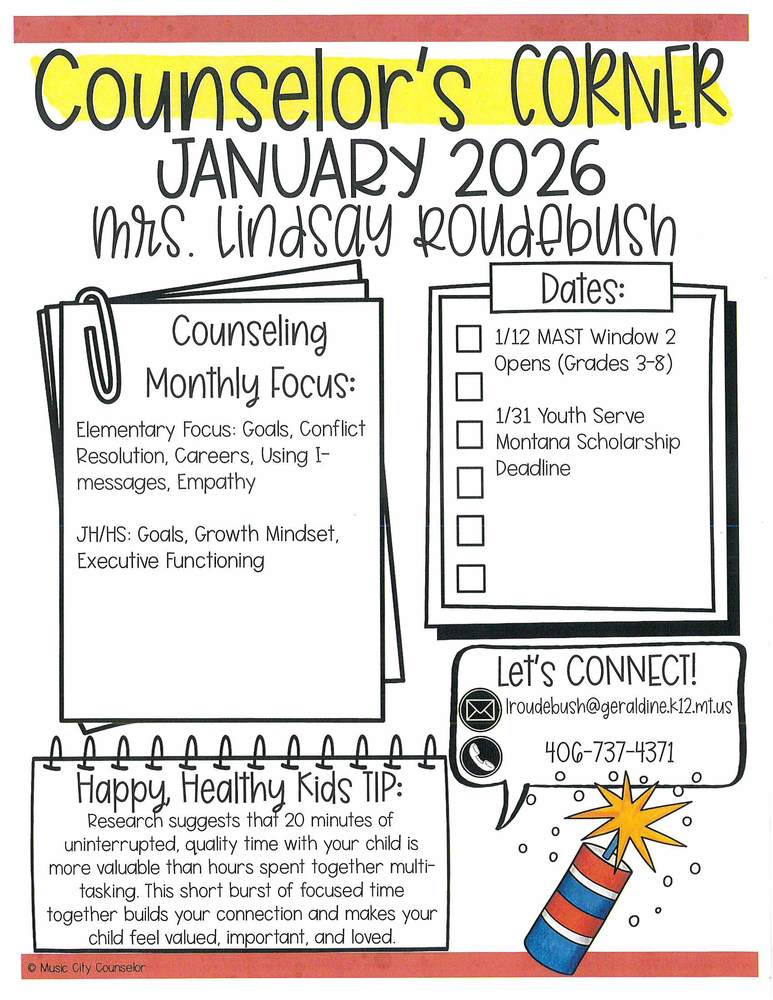 Counselor's CORNER
JANUARY 2026
Mrs. Lindsay Roudebush
Counseling
Monthly Focus:
Elementary Focus: Goals, Conflict
Resolution, Careers, Using I-
messages, Empathy
JH/HS: Goals, Growth Mindset,
Executive Functioning
Dates:
1/12 MAST Window 2
Opens (Grades 3-8)
1/31 Youth Serve
Montana Scholarship
Deadline
Let's CONNECT!
lroudebush@geraldine.k12.mt.us
406-737-4371
Happy, Healthy Kids TIP:
Research suggests that 20 minutes of
uninterrupted, quality time with your child is
more valuable than hours spent together multi-
tasking. This short burst of focused time
together builds your connection and makes your
child feel valued, important, and loved.
© Music City Counselor